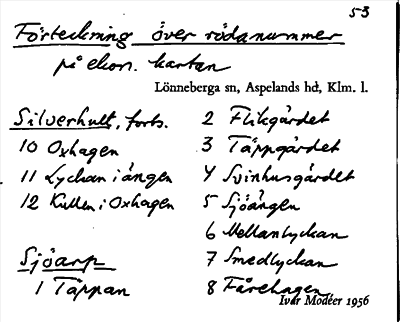 53
Förteckning över rödanummer
på ekon. kartan
Lönneberga sn, Aspelands hd, Klm. l.
Silverhult, forts.
10 Oxhagen
11 Lyckan i ängen
12 Kullen i Oxhagen
Sjöarp
1 Täppan
2 Flikgärdet
3 Täppgärdet
4 Svinhusgärdet
5 Sjöängen
6 Mellanlyckan
7 Smedlyckan
8 Fårehagen
Ivar Modéer 1956